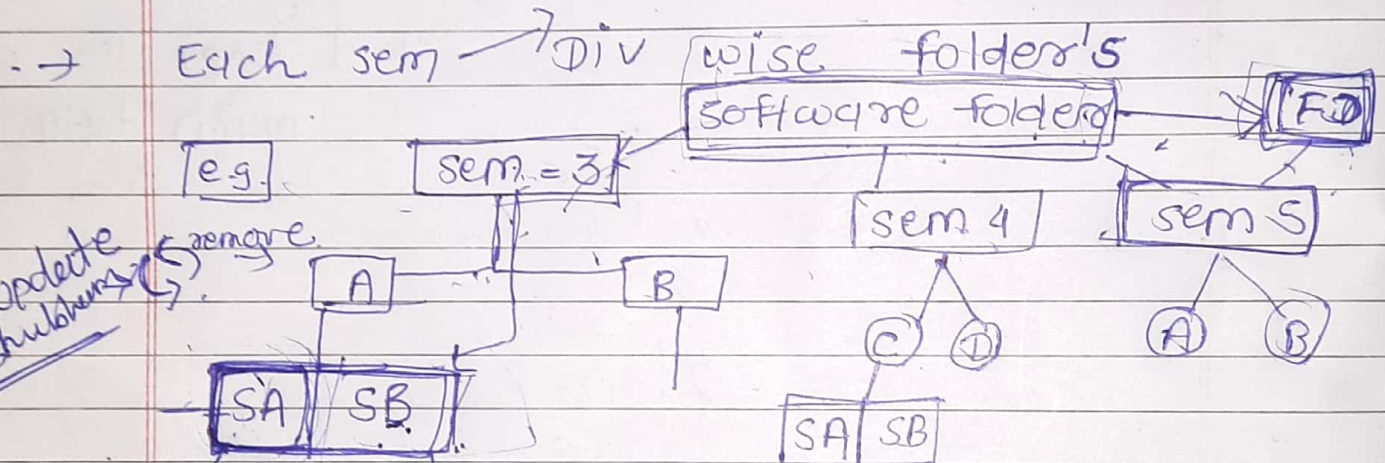 .→ Each sem → Div wise folder's
software folder
FD
e.g.
sem = 3
sem 4
sem 5
remove
update
A
B
C
D
A
B
SA
SB
SA
SB